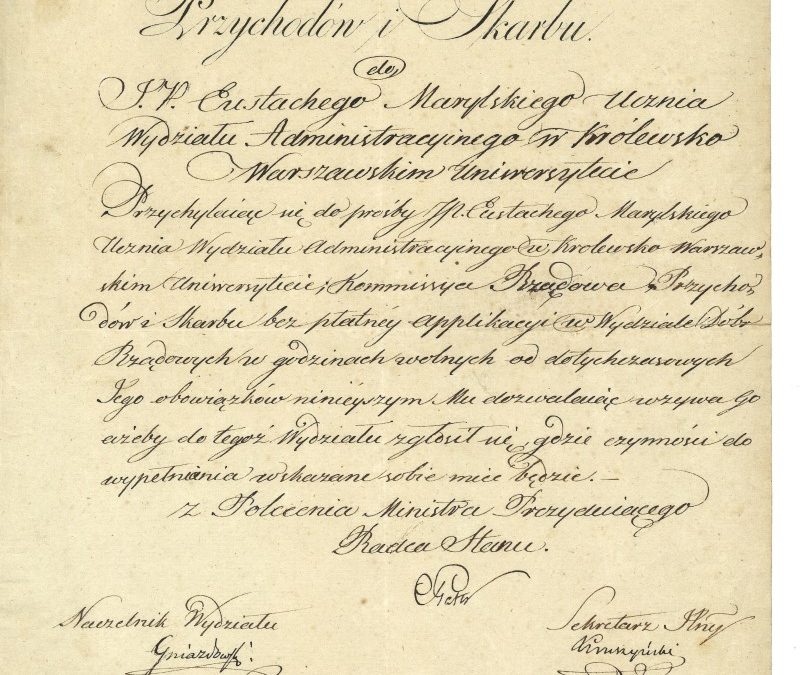 Przychodów i Skarbu.
do
J. P. Eustachego Marylskiego Ucznia
Wydziału Administracyinego w Królewsko
Warszawskim Uniwersytecie
Przychylaiąc się do prośby JP. Eustachego Marylskiego
Ucznia Wydziału Administracyinego w Królewsko Warszaw-
skim Uniwersytecie, Kommissya Rządowa Przycho-
dów i Skarbu bez płatnéy applikacyi w Wydziale Dóbr
Rządowych w godzinach wolnych od dotychczasowych
Jego obowiązków ninieyszym Mu dozwalaiąc wzywa go
ażeby do tegoż Wydziału zgłosił się, gdzie czynności do
wypełniania wskazane sobie mieć będzie. —
z Polecenia Ministra Prezyduiącego
Radca Stanu.
Naczelnik Wydziału
Sekretarz Jlny
Gniazdowski
Kruszyński